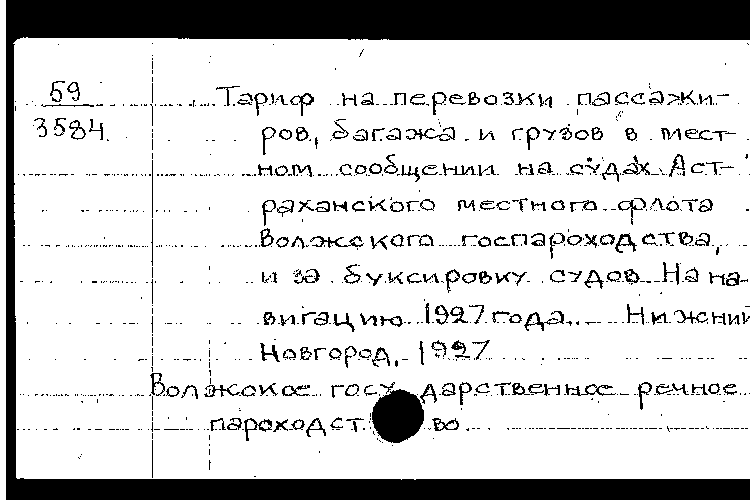 59
3584
Тариф на перевозки пассажи-
ров, багажа и грузов в мест-
ном сообщении на судах Аст-
раханского местного флота
Волжского госпароходства,
и за буксировку судов На на-
вигацию 1927 года. Нижний
Новгород, 1927
Волжское госу дарственное речное
пароходст во